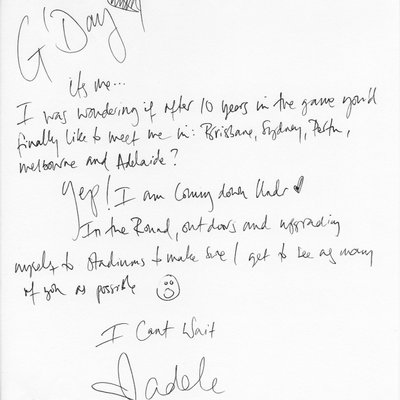 G'Day!
its me...
I was wondering if after 10 years in the game you'd
finally like to meet me in: Brisbane, Sydney, Perth,
Melbourne and Adelaide?
Yep! I am Coming down Under
In the Round, outdoors and upgrading
myself to Stadiums to make sure I get to see as many
of you as possible
I Cant Wait
Adele